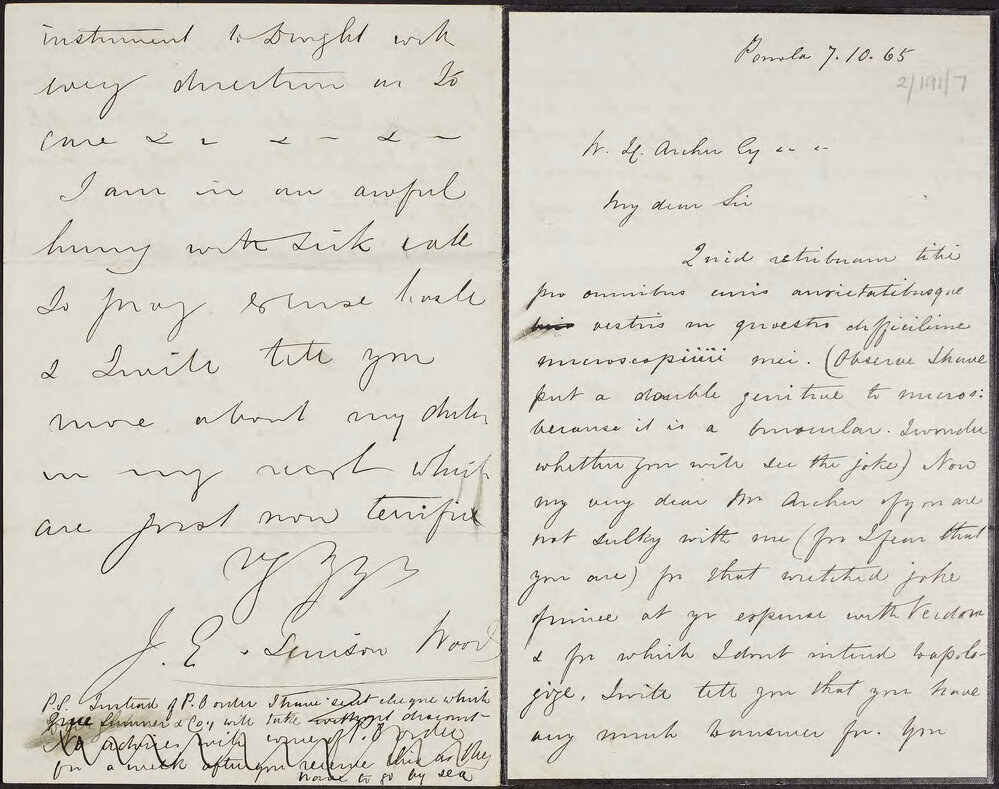 instrument to Dwight with
every direction as to
care & - & - & -
I am in an awful
hurry with sick call
so pray excuse haste
& I will tell you
more about my duties
in my next which
are just now terrific
J. E. Tenison Wood
P.S. Instead of P.O order I have sent cheque which
Guee Sumner & Co., will take without discount
No advices with P.O order
for a week after you receive this as they
have to go by sea
Penola 7.10.65
2/191/7
W. H. Archer Esq
My dear Sir
Quid retribuam tibi
pro omnibus curis anxietatibusque
vestris in questo difficilime
microscopiiiii mei. (Observe I have
put a double genitive to micros:
because it is a binocular. I wonder
whether you will see the joke) Now
my very dear Mr Archer if you are
not sulky with me (for I fear that
you are) for that wretched joke
of mine at yr expense with Verdon
& for which I dont intend to apolo-
gize, I will tell you that you have
very much to answer for. You